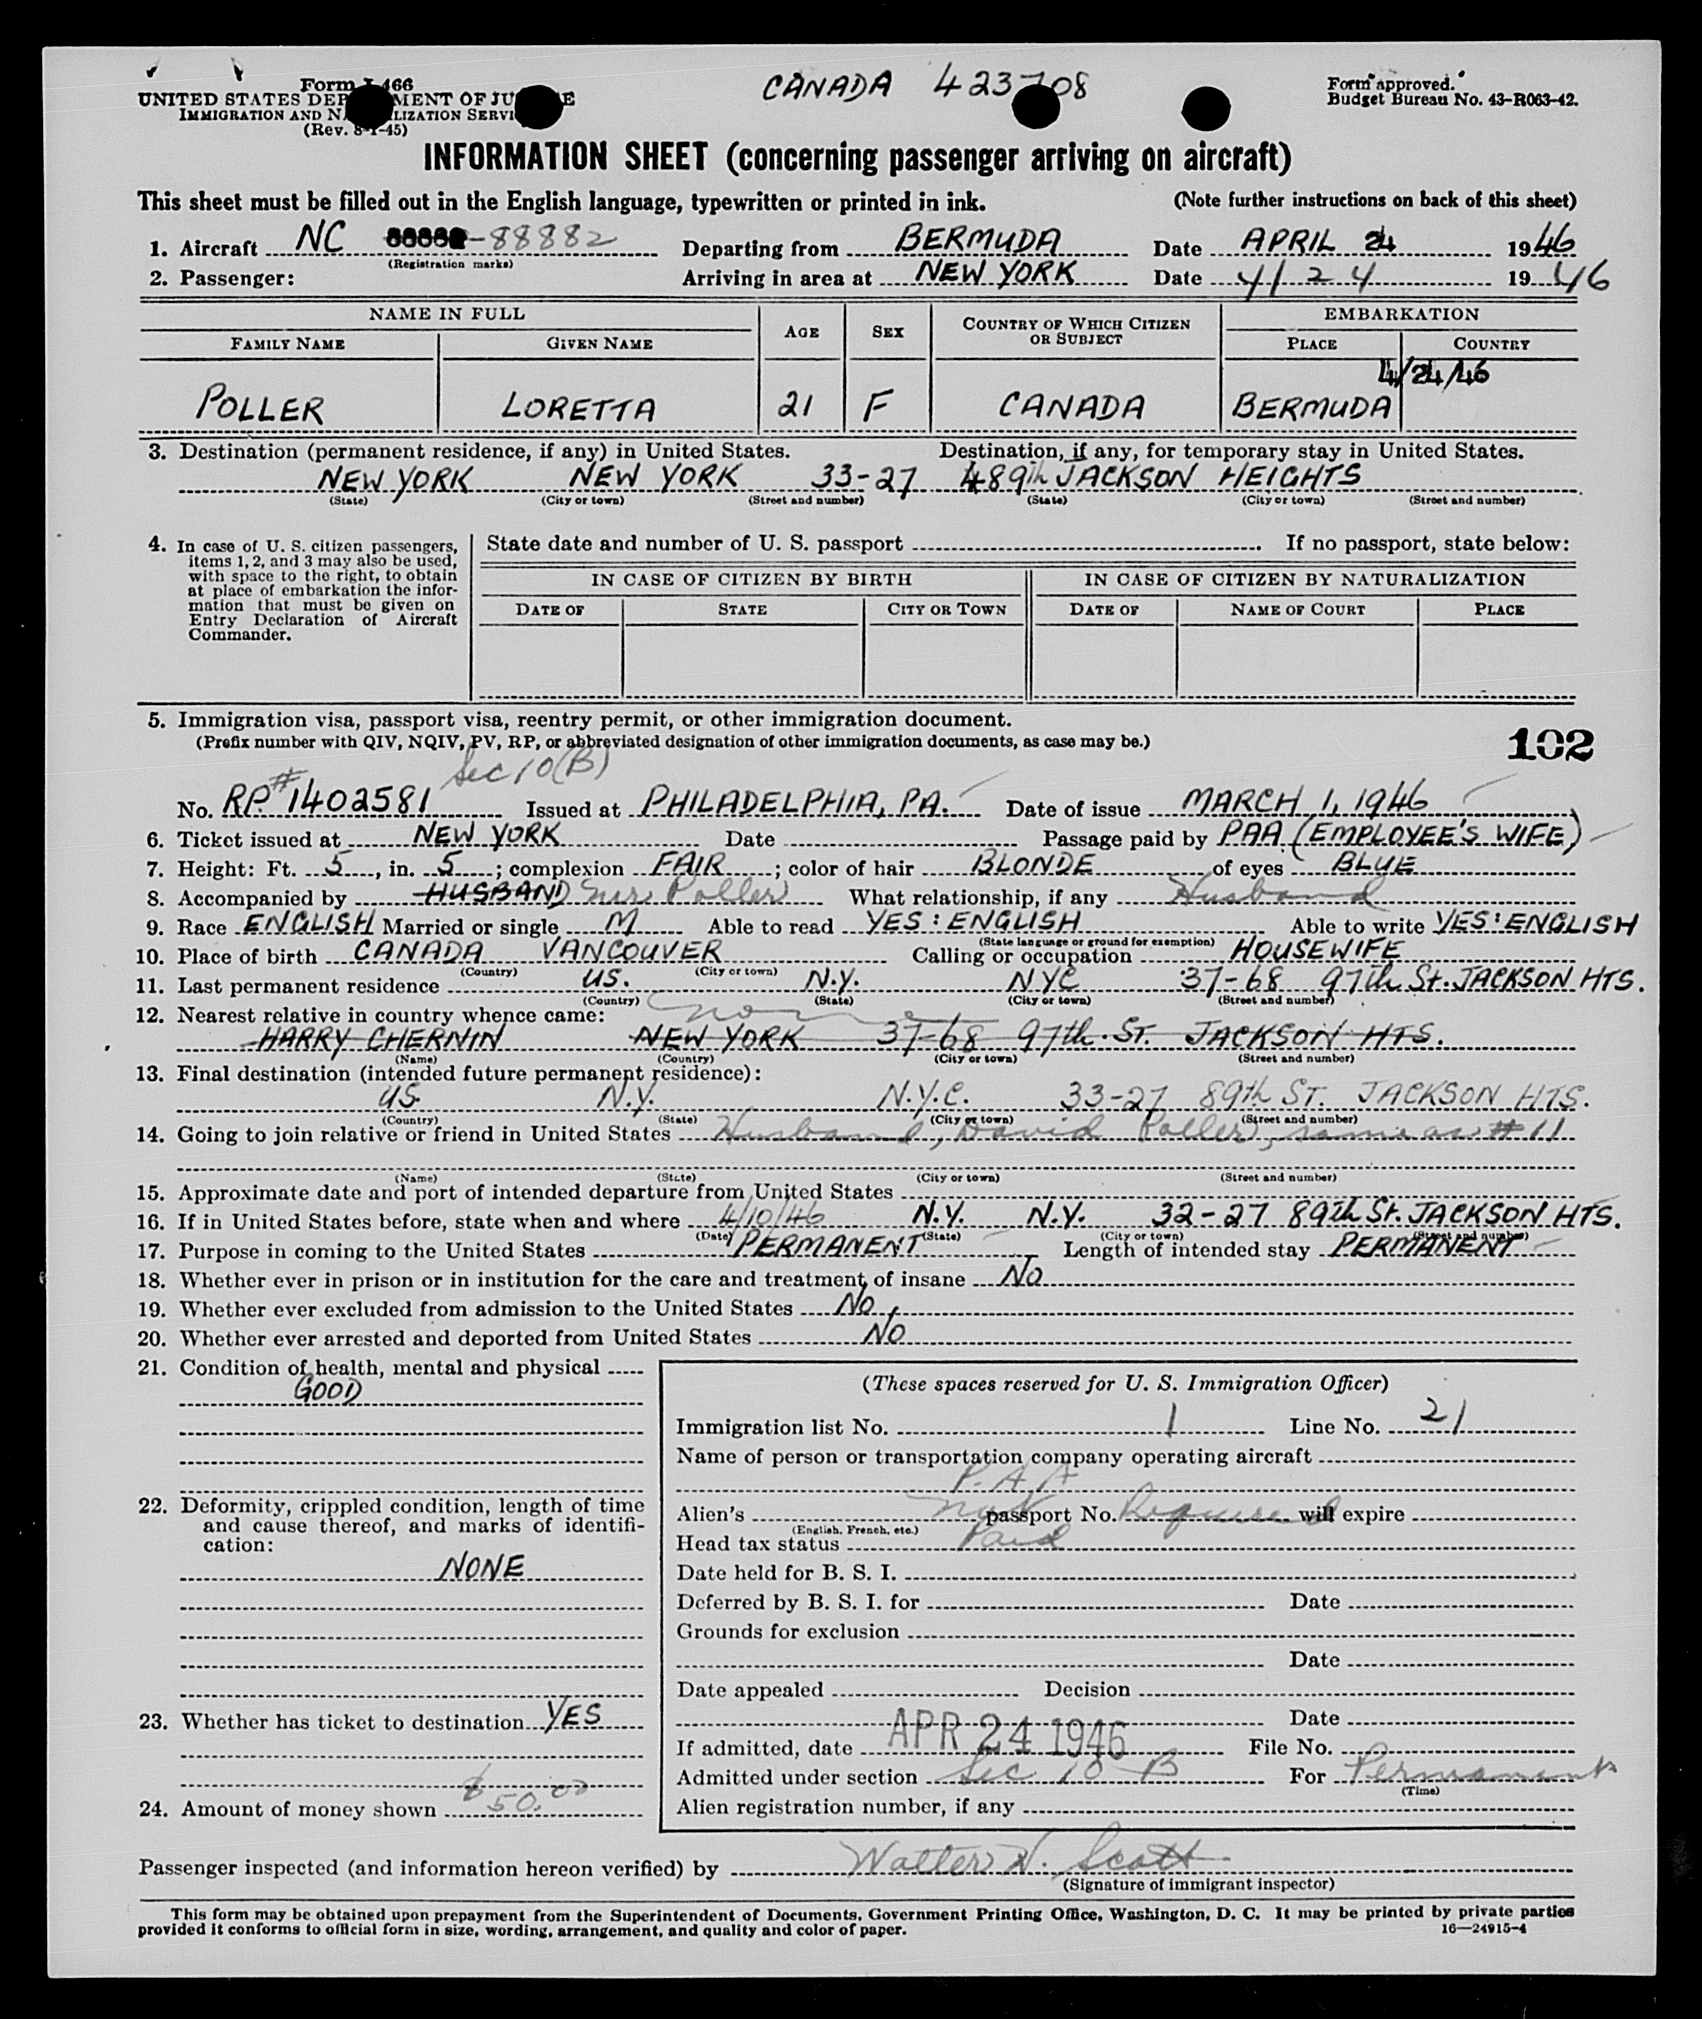 CANADA 423708
Form I-466
UNITED STATES DEPARTMENT OF JUSTICE
IMMIGRATION AND NATURALIZATION SERVICE
(Rev. 8-1-45)
Form approved.
Budget Bureau No. 43-R063-42.
INFORMATION SHEET (concerning passenger arriving on aircraft)
This sheet must be filled out in the English language, typewritten or printed in ink. (Note further instructions on back of this sheet)
1. Aircraft NC 88882 Departing from BERMUDA Date APRIL 24 1946
(Registration marks)
2. Passenger: Arriving in area at NEW YORK Date 4/24 1946
NAME IN FULL AGE SEX COUNTRY OF WHICH CITIZEN OR SUBJECT EMBARKATION
FAMILY NAME GIVEN NAME PLACE COUNTRY
4/24/46
POLLER LORETTA 21 F CANADA BERMUDA
3. Destination (permanent residence, if any) in United States. Destination, if any, for temporary stay in United States.
NEW YORK NEW YORK 33-27 489th JACKSON HEIGHTS
(State) (City or town) (Street and number) (State) (City or town) (Street and number)
4. In case of U. S. citizen passengers, items 1, 2, and 3 may also be used, with space to the right, to obtain at place of embarkation the information that must be given on Entry Declaration of Aircraft Commander.
State date and number of U. S. passport . If no passport, state below:
IN CASE OF CITIZEN BY BIRTH IN CASE OF CITIZEN BY NATURALIZATION
DATE OF STATE CITY OR TOWN DATE OF NAME OF COURT PLACE
5. Immigration visa, passport visa, reentry permit, or other immigration document.
(Prefix number with QIV, NQIV, PV, RP, or abbreviated designation of other immigration documents, as case may be.)
102
Sec 10(B)
No. RP. #1402581 Issued at PHILADELPHIA, PA. Date of issue MARCH 1, 1946
6. Ticket issued at NEW YORK Date Passage paid by PAA (EMPLOYEE'S WIFE)
7. Height: Ft. 5, in. 5; complexion FAIR; color of hair BLONDE of eyes BLUE
8. Accompanied by HUSBAND Poller What relationship, if any Husband
9. Race ENGLISH Married or single M Able to read YES: ENGLISH Able to write YES: ENGLISH
(State language or ground for exemption)
10. Place of birth CANADA VANCOUVER Calling or occupation HOUSEWIFE
(Country) (City or town)
11. Last permanent residence US. N.Y. NYC 37-68 97th St. JACKSON HTS.
(Country) (State) (City or town) (Street and number)
12. Nearest relative in country whence came: none
HARRY CHERNIN NEW YORK 37-68 97th. ST. JACKSON HTS.
(Name) (Country) (City or town) (Street and number)
13. Final destination (intended future permanent residence):
US N.Y. N.Y.C. 33-27 89th ST. JACKSON HTS.
(Country) (State) (City or town) (Street and number)
14. Going to join relative or friend in United States Husband, David Poller, same as #11
(Name) (State) (City or town) (Street and number)
15. Approximate date and port of intended departure from United States
16. If in United States before, state when and where 4/10/46 N.Y. N.Y. 32-27 89th St. JACKSON HTS.
(Date) (State) (City or town) (Street and number)
17. Purpose in coming to the United States PERMANENT Length of intended stay PERMANENT
18. Whether ever in prison or in institution for the care and treatment of insane NO
19. Whether ever excluded from admission to the United States NO
20. Whether ever arrested and deported from United States NO
21. Condition of health, mental and physical
GOOD
22. Deformity, crippled condition, length of time and cause thereof, and marks of identification:
NONE
23. Whether has ticket to destination YES
24. Amount of money shown $50.00
(These spaces reserved for U. S. Immigration Officer)
Immigration list No. 1 Line No. 21
Name of person or transportation company operating aircraft
P.A.A
Alien's Not passport No. Required will expire
(English, French, etc.)
Head tax status Paid
Date held for B. S. I.
Deferred by B. S. I. for Date
Grounds for exclusion
Date
Date appealed Decision
Date
If admitted, date APR 24 1946 File No.
Admitted under section Sec 10 B For Permanent
(Time)
Alien registration number, if any
Passenger inspected (and information hereon verified) by Walter N. Scott
(Signature of immigrant inspector)
This form may be obtained upon prepayment from the Superintendent of Documents, Government Printing Office, Washington, D. C. It may be printed by private parties
provided it conforms to official form in size, wording, arrangement, and quality and color of paper. 16—24915-4